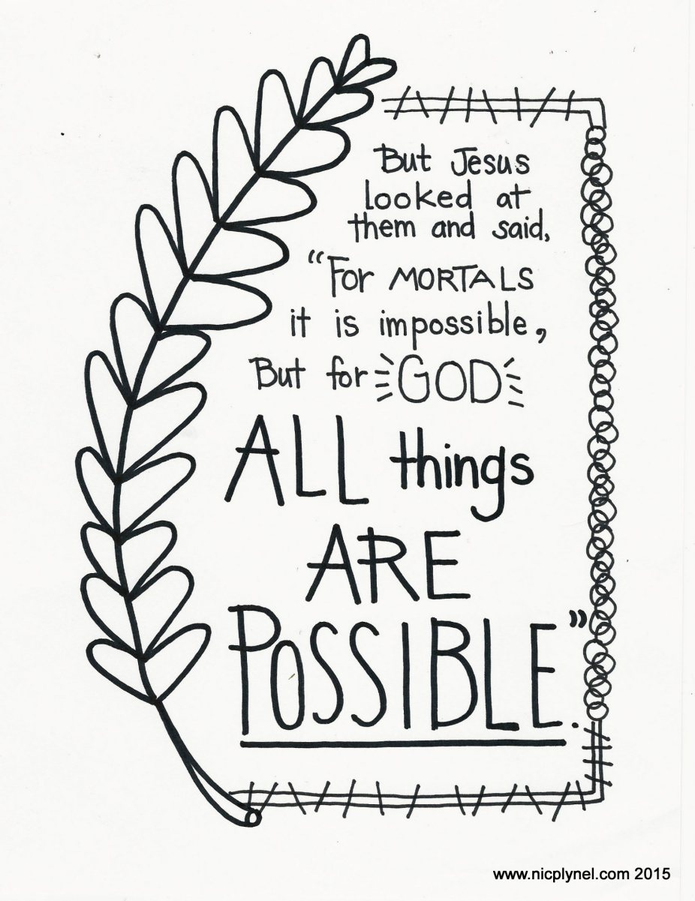 But Jesus
looked at
them and said,
“For MORTALS
it is impossible,
But for GOD
ALL things
ARE
POSSIBLE.”
www.nicplynel.com 2015